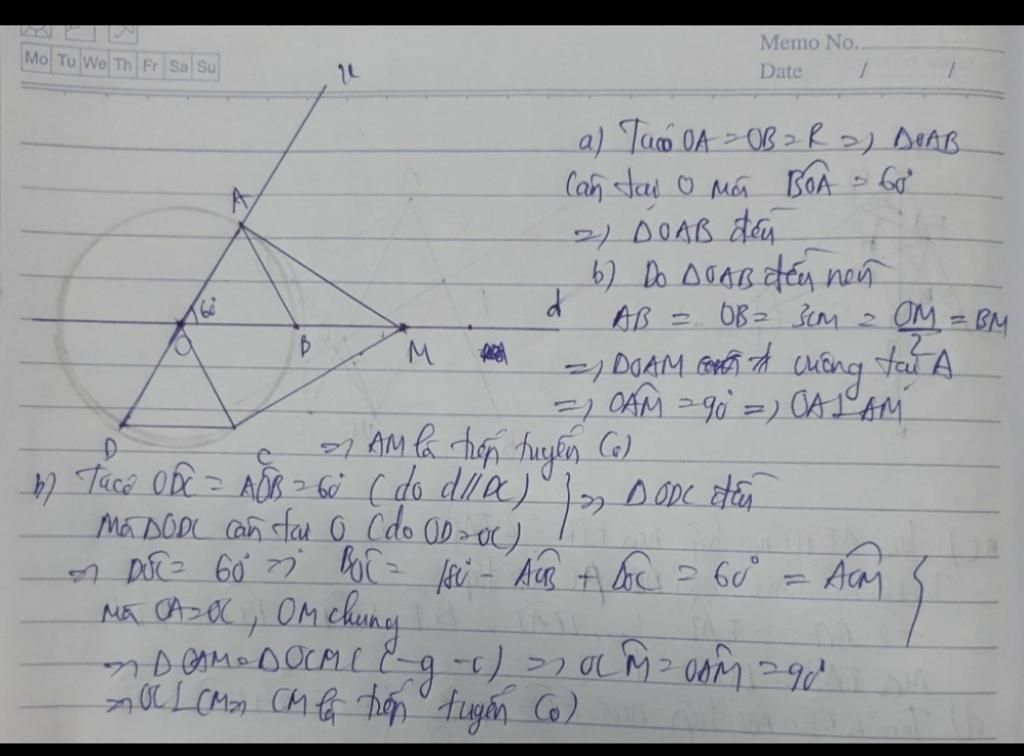 Memo No.
Mo Tu We Th Fr Sa Su
Date / /
u
a) Ta có OA = OB = R => ΔOAB
Cân tại O mà BOA = 60°
A
=> ΔOAB đều
b) Do ΔOAB đều nên
60°
d
AB = OB = 3cm = OM/2 = BM
O
B
M
=> ΔOAM vuông tại A
=> OAM = 90° => OA ⊥ AM
D
C
=> AM là tiếp tuyến (O)
b) Ta có ODC = AOB = 60° (do d // DC)
Mà ΔODC cân tại O (do OD = OC)
} => ΔODC đều
=> DOC = 60° => BOC = 180° - AOB + DOC = 60° = AOM
Mà OA = OC, OM chung
=> ΔOAM = ΔOCM (c-g-c) => OCM = OAM = 90°
=> OC ⊥ CM => CM là tiếp tuyến (O)